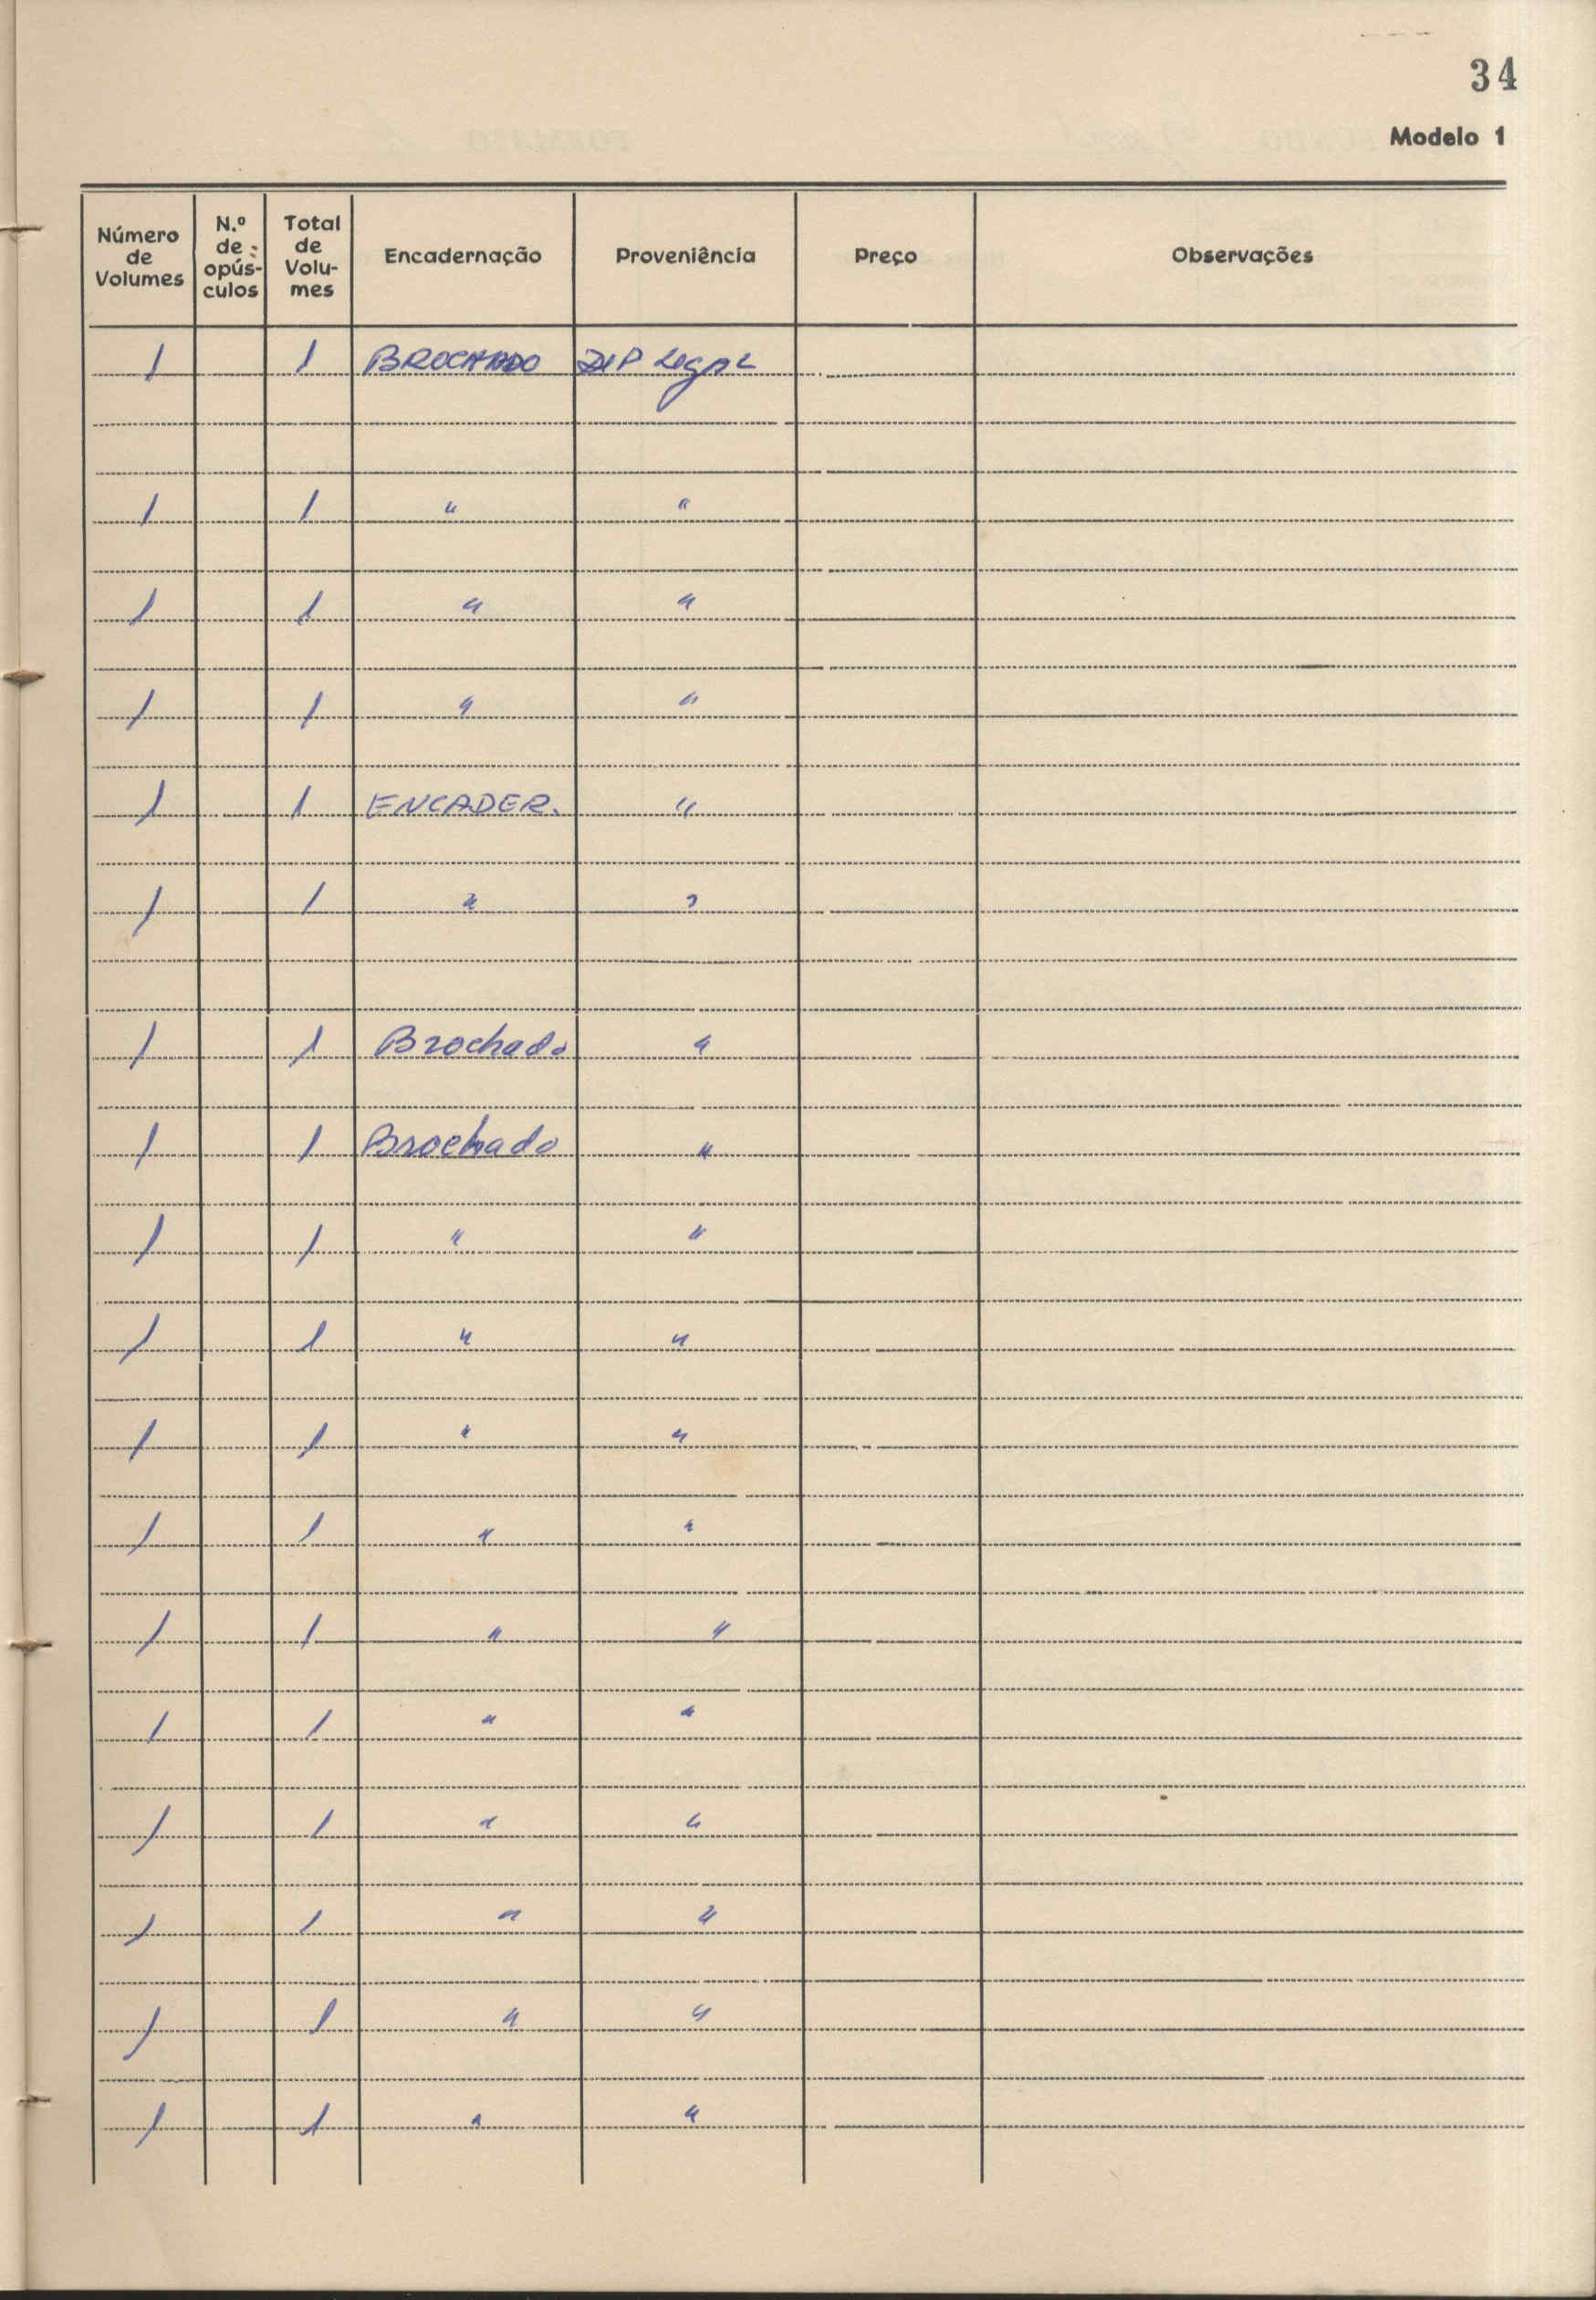 34
Modelo 1
Número de Volumes | N.º de opús-culos | Total de Volu-mes | Encadernação | Proveniência | Preço | Observações
1 | | 1 | BROCHADO | DEP Legal
1 | | 1 | " | "
1 | | 1 | " | "
1 | | 1 | " | "
1 | | 1 | ENCADER. | "
1 | | 1 | " | "
1 | | 1 | Brochado | "
1 | | 1 | Brochado | "
1 | | 1 | " | "
1 | | 1 | " | "
1 | | 1 | " | "
1 | | 1 | " | "
1 | | 1 | " | "
1 | | 1 | " | "
1 | | 1 | " | "
1 | | 1 | " | "
1 | | 1 | " | "
1 | | 1 | " | "